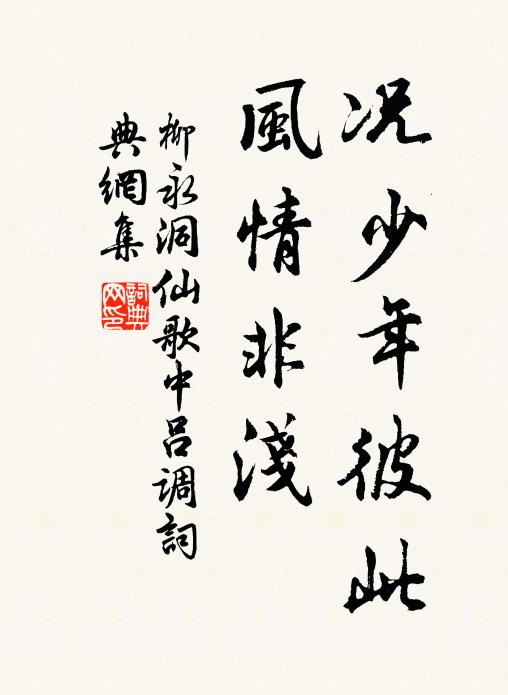 况少年彼此
風情非淺
柳永洞仙歌中吕調詞
典網集
詞典
网印